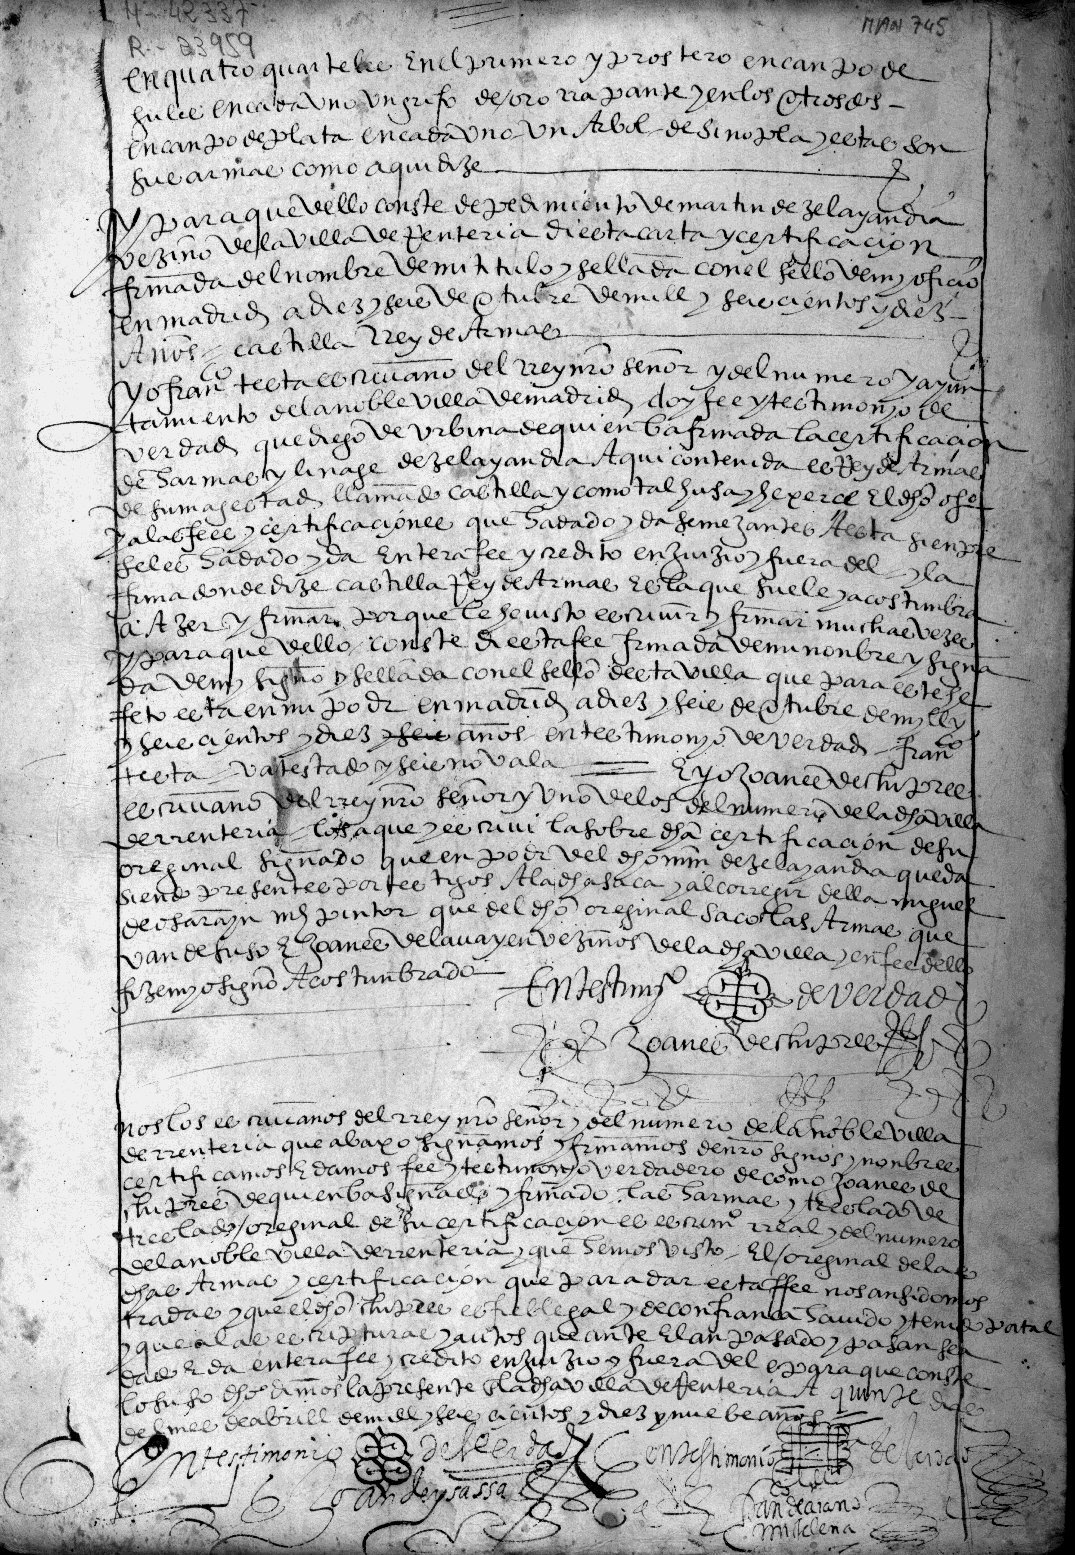 H - 42337
R. - 23959
MAN 745
en quatro quarteles en el primero y prostero en canpo de
gules en cada uno un grifo de oro rrapante y en los otros dos
en canpo de plata en cada uno un Arbol de sinopla y estas son
sus armas como aqui dize
Y para que dello conste de pedimiento de martin de zelayandia
vezino de la villa de Renteria di esta carta y certificacion
firmada del nombre de mi titulo y sellada con el sello de my oficio
en madrid a diez y seis de otubre de mill y seiscientos y diez
Años castilla Rrey de Armas
Yo franco testa escrivano del rrey nro señor y del numero y ayun
tamiento de la noble villa de madrid doy fee y testimonyo de
verdad que diego de urbina de quien ba firmada la certificacion
de harmas y linage de zelayandia Aqui contenida es Rey de Armas
de su magestad llamado castilla y como tal husa y hexerce El dho ofo
y a las fees y certificaciones que ha dado y da semezantes A esta sienpre
se les ha dado y da Entera fee y credito en zuizio y fuera del y la
firma donde dize castilla Rey de Armas Es la que suele y acostunbra
a Azer y firmar porque le he visto escrivir y firmar muchas vezes
y para que dello conste di esta fee firmada de mi nonbre y signa
da de my signo y sellada con el sello desta villa que para este he
feto esta en mi poder en madrid a diez y seis de otubre de myll y
y seiscientos y diez y seis años en testimonyo de verdad franco
testa va testado y seis no vala Eyo zoanes de chipres
escrivano del rrey nro señor y uno de los del numero de la dha villa
de rrenteria saque y escrivi la sobre dha certificacion de su
oreginal signado que en poder del dho mrn de zelayandia queda
siendo presentes por testigos A la dha saca y al corregir della miguel
de osarayn pintor que del dho oreginal saco las Armas que
van de suso E zoanes de lavayen vezinos de la dha villa y en fee dello
fize my signo Acostunbrado
En testimyo de verdad
Zoanes de chipres
nos los escrivanos del rrey nro señor y del numero de la noble villa
de rrenteria que abaxo signamos y firmamos de nros signos y nonbres
certificamos E damos fee y testimonyo verdadero de como zoanes de
chipres de quien ba signado y firmado las harmas y treslado de
treslado oreginal de su certificacion es escrivano rreal y del numero
de la noble villa de rrenteria y que hemos visto El oreginal de las
dhas Armas y certificacion que para dar esta ffee nos an sido mos
tradas y que el dho chipres es fiel legal y de confiança havido y tenido por tal
y que a las escripturas y autos que ante El an pasado y pasan se a
dado E da entera fee y credito en zuizio y fuera del e para que conste
lo suso dho dimos la presente En la dha villa de Renteria A quinze dias
del mes de abrill de mill y seiscientos y diez y nuebe años
En testimonio de Verdad En testimonio de Verdad
Joan de ysassa Juan de arano